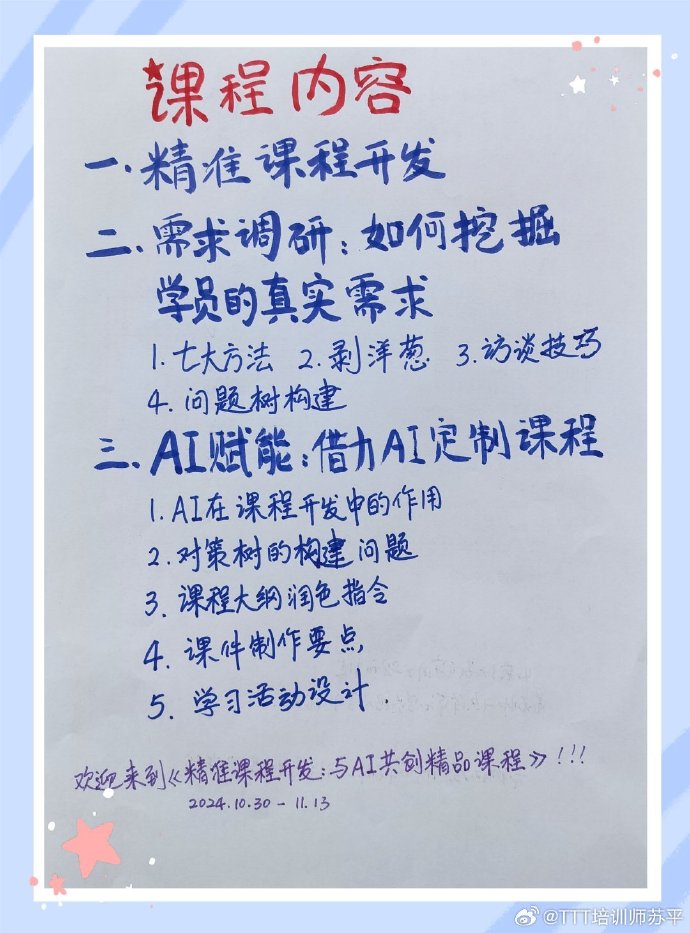 课程内容
一.精准课程开发
二.需求调研：如何挖掘
学员的真实需求
1.七大方法 2.剥洋葱 3.访谈技巧
4.问题树构建
三.AI赋能：借力AI定制课程
1.AI在课程开发中的作用
2.对策树的构建问题
3.课程大纲润色指令
4.课件制作要点
5.学习活动设计.
欢迎来到《精准课程开发：与AI共创精品课程》!!!
2024.10.30-11.13
@TTT培训师苏平